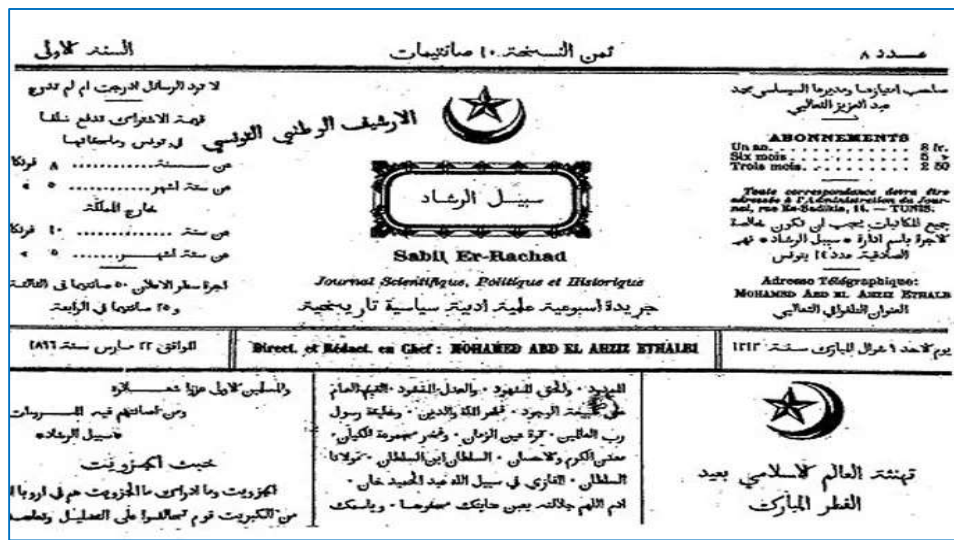 عدد ٨
ثمن النسخة ١٠ صانتيمات
السنة الاولى
صاحب امتيازها ومديرها السياسي محمد
عبد العزيز الثعالبي
ABONNEMENTS
Un an. . . . . . . . . 8 fr.
Six mois . . . . . . . . 5 »
Trois mois. . . . . . . . 2 50
Toute correspondance devra être
adressée à l'Administration du Jour-
nal, rue Es-Sadikia, 14. — TUNIS.
جميع المكاتبات يجب ان تكون خالصة
الاجرة باسم ادارة «سبيل الرشاد» نهج
الصادقية عدد ١٤ بتونس
Adresse Télégraphique:
MOHAMED ABD EL AHZIZ ETHALB
العنوان التلغرافي الثعالبي
الارشيف الوطني التونسي
سبيل الرشاد
Sabil Er-Rachad
Journal Scientifique, Politique et Historique
جريدة اسبوعية علمية ادبية سياسية تاريخية
لا ترد الرسائل ادرجت ام لم تدرج
قيمة الاشتراك تدفع سلفا
في تونس وملحقاتها
عن سنة ٨ فرنكا
عن ستة اشهر ٥ »
خارج المملكة
عن سنة ١٠ فرنكا
عن ستة اشهر ٥ »
اجرة سطر الاعلان ٥٠ صانتيما في الثالثة
و٢٥ صانتيما في الرابعة
يوم الاحد ٩ شوال المبارك سنة ١٣١٣
Direct. et Rédact. en Chef : MOHAMED ABD EL AHZIZ ETHALBI
الموافق ٢٢ مارس سنة ١٨٩٦
تهنئة العالم الاسلامي بعيد
الفطر المبارك
والعدل المنشود
الوجود فخر الملة والدين وخليفة رسول
رب العالمين
معنى الكرم والاحسان السلطان ابن السلطان مولانا
السلطان الغازي في سبيل الله عبد الحميد خان
ادم اللهم جلالته بعين عنايتك محفوظا
«سبيل الرشاد»
خبث الجزويت
الجزويت وما ادراك ما الجزويت هم في اروبا
قوم تحالفوا على التضليل